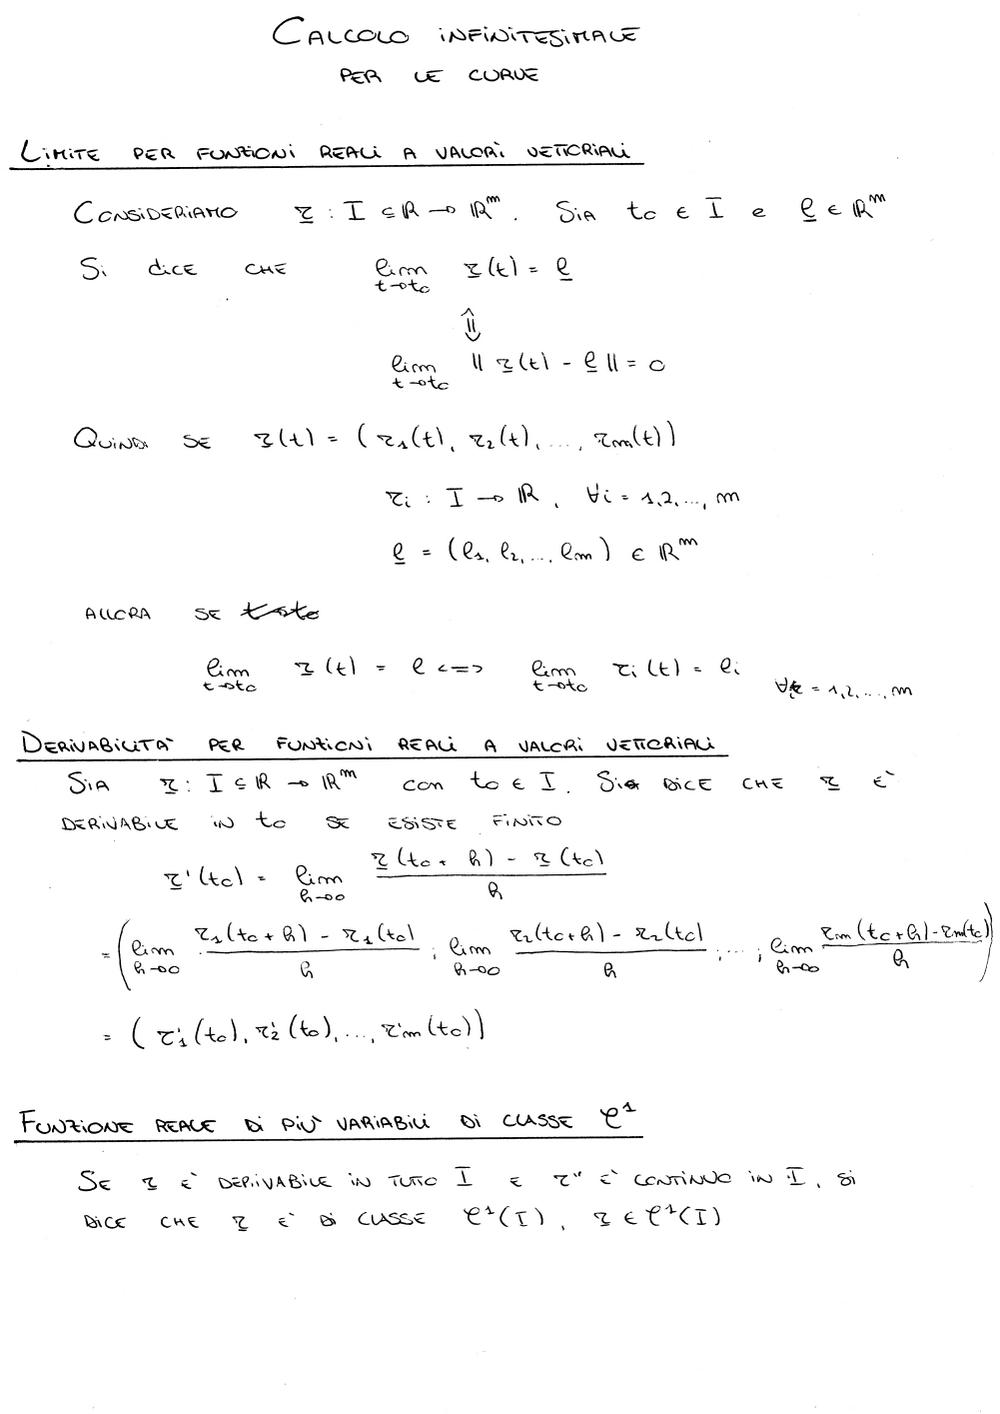 CALCOLO INFINITESIMALE
PER LE CURVE
LIMITE PER FUNZIONI REALI A VALORI VETTORIALI
CONSIDERIAMO r : I ⊆ ℝ → ℝᵐ. SIA t₀ ∈ I e ℓ ∈ ℝᵐ
SI DICE CHE lim t→t₀ r(t) = ℓ
⇕
lim t→t₀ || r(t) - ℓ || = 0
QUINDI SE r(t) = ( r₁(t), r₂(t), ..., rₘ(t))
rᵢ : I → ℝ, ∀i = 1,2,..., m
ℓ = (ℓ₁, ℓ₂, ... ℓₘ) ∈ ℝᵐ
ALLORA SE t→t₀
lim t→t₀ r(t) = ℓ <=> lim t→t₀ rᵢ(t) = ℓᵢ ∀i = 1,2,..., m
DERIVABILITA' PER FUNZIONI REALI A VALORI VETTORIALI
SIA r : I ⊆ ℝ → ℝᵐ con t₀ ∈ I. SI DICE CHE r E'
DERIVABILE IN t₀ SE ESISTE FINITO
r'(t₀) = lim h→0 (r(t₀ + h) - r(t₀))/h
= ( lim h→0 (r₁(t₀ + h) - r₁(t₀))/h ; lim h→0 (r₂(t₀+h) - r₂(t₀))/h ; ... ; lim h→0 (rₘ(t₀+h) - rₘ(t₀))/h )
= ( r'₁(t₀), r'₂(t₀), ..., r'ₘ(t₀))
FUNZIONE REALE DI PIU' VARIABILI DI CLASSE 𝒞¹
SE r E' DERIVABILE IN TUTTO I E r'' E' CONTINUO IN I, SI
DICE CHE r E' DI CLASSE 𝒞¹(I), r ∈ 𝒞¹(I)